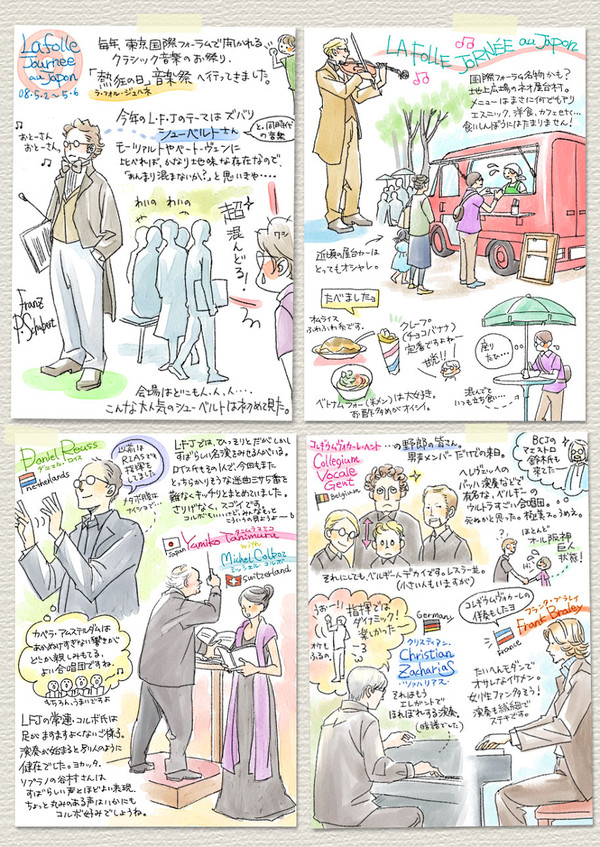 La folle
Journée
au Japon
08・5・2〜5・6
毎年、東京国際フォーラムで開かれる、
クラシック音楽のお祭り、
「熱狂の日」音楽祭 へ行ってきました。
ラ・フォル・ジュルネ
今年のL・F・Jのテーマは ズバリ
シューベルトさん
と、同時代の音楽
モーツァルトやベートーヴェンに
比べれば、かなり地味な存在なので、
「あんまり混まないか?」と思いきや・・・・
おとーさん
おとーさん
わい
わいの
わいの
超
混んどる!
ワシ
Franz
P. Schubert
会場はどこもん、人、人・・・
こんな大人気のシューベルトはネクめて見た。
LA FOLLE JORNÉE au JAPON
国際フォーラム名物かも?
地上広場のネオ屋台村。
メニューはまさに何でもアリ
エスニック、洋食、カフェetc…
食いしんぼうにはたまりません!
近頃の屋台カーは
とってもオシャレ。
たべましたョ
オムライス
ふわふわ系です。
クレープ
(チョコバナナ)
定番ですよねー
甘党!!
ベトナムフォー(米メン)は大好き。
お酢多めがオイシイ。
座りたひ…
混んでて
いつも立ち食い…
Daniel Reuss
ダニエル・ロイス
netherlands
以前は
RIASでも
指揮を
してました
L・F・Jでは、ひっそりとだがしかし
すばらしい名演もみせるんでいる。
ロイス氏もその1人で、今回もまた
とっちらかりそうな選曲ミサ5番を
難なくキッチリとまとめていました。
さりげなく、スゴイです。
Yumiko Tanimura
タニムラユミコ
Japan
with
Michel Corboz
ミッシェル コルボ
Switzerland
カペラ・アムステルダムは
あかぬけすぎない響きが
どこか親しみもてる、
よい合唱団ですね。
もちろん、うまいですよ
LFJの常連・コルボ氏は
足がますますよくないご様子。
演奏が始まると別人のように
健在でした。ヨカッタ。
ソプラノの谷村さんは
すばらしい声とほどよい表現、
ちょっと丸みのある声はいかにも
コルボ好みでしょうね。
コレギウムヴォカーレ・ヘント …の野郎の皆さん。
Collegium
Vocale
Gent
Belgium
男声メンバーだけでの来日。
ヘレヴェッヘの
バッハ演奏などで
有名な、ベルギーの
ウルトラすごい合唱団。
死ぬかと思った。極楽スゥめえ。
BCJの
マエストロ
鈴木氏も
来てた
それにしてもベルギー人デカイです。レスラー並。
(小さい人もいますが)
ほとんど
オール阪神
巨人
状態!
Hi
おー!!
指揮では
ダイナミック!
楽しかったー
オケも
ふるの。
Germany
クリスティアン・
Christian
Zacharias
ツァハリアス
それはもう
エレガントで
ほれぼれする演奏。
コレギウムヴォカーレの
伴奏もしたヨ
フランク・ブラレイ
Frank Braley
france
たいへんモダンで
オサレなイケメン。
女性ファン多そう!
演奏も繊細で
ステキです。